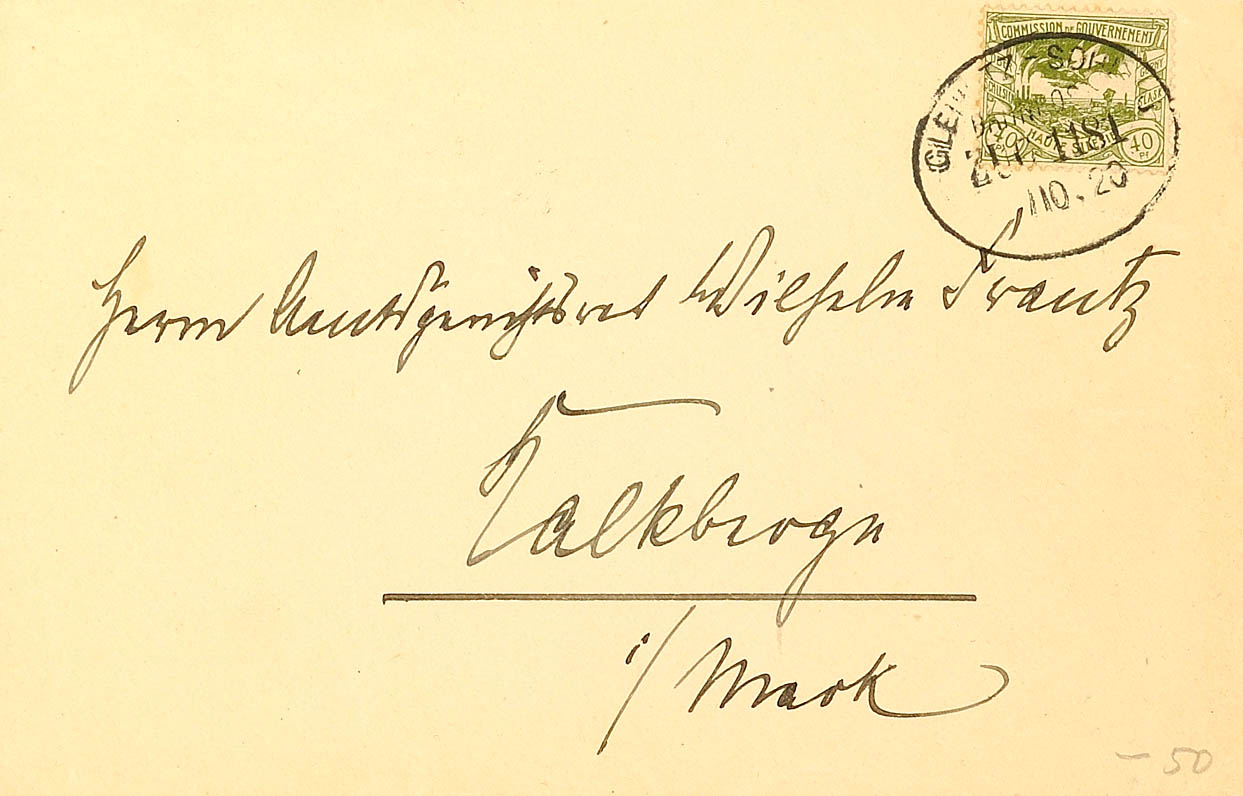 COMMISSION DE GOUVERNEMENT
HAUTE SILÉSIE
40 PF 40 PF
ZUG 1181
10. 20
Herrn Amtsgerichtsrat Wilhelm Frantz
Kalkberge
i/Mark
- 50